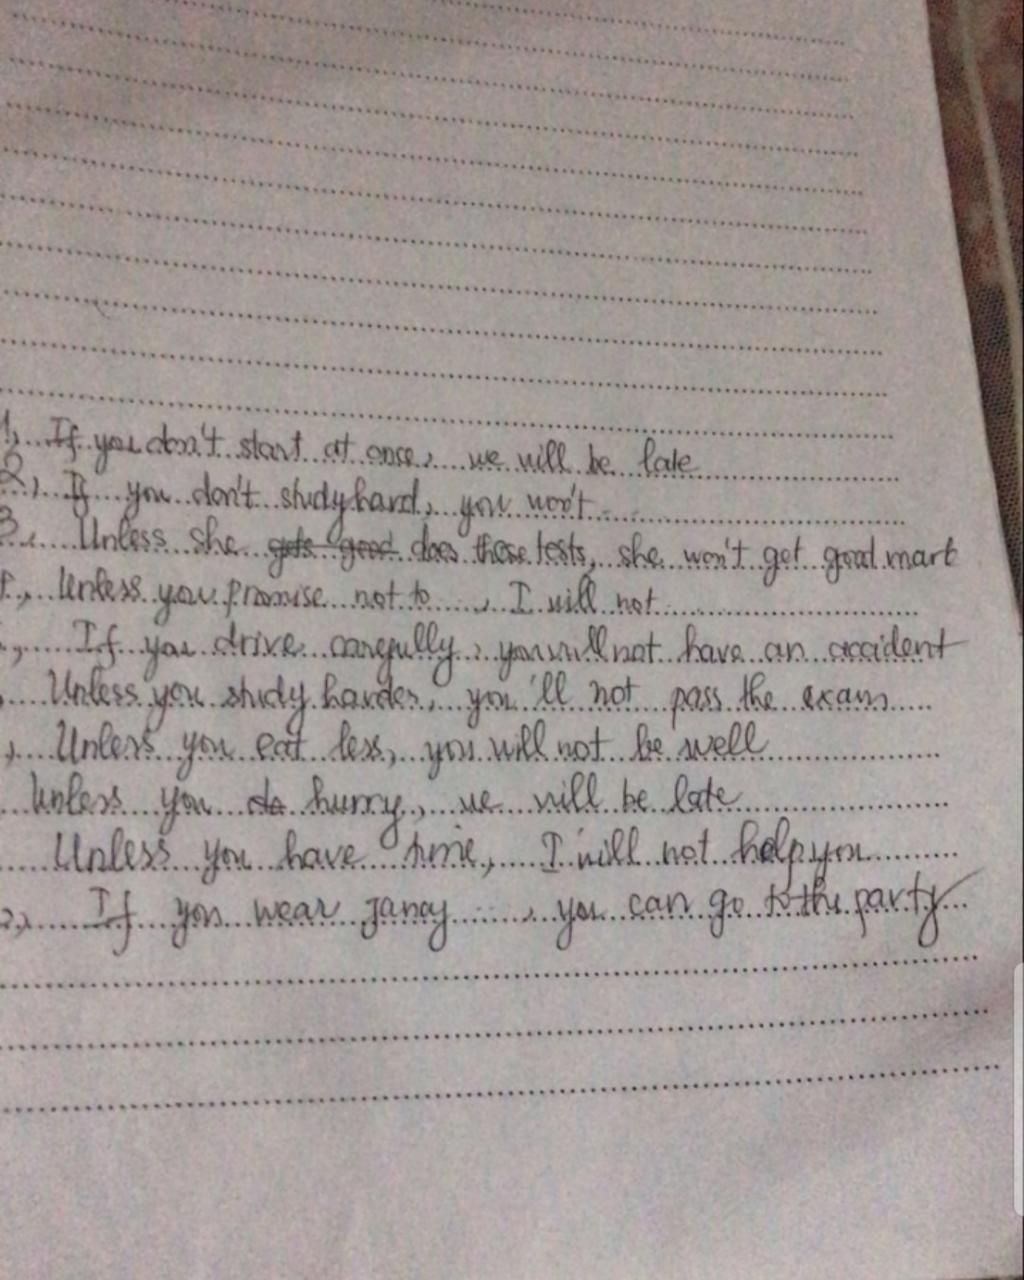 1, If you don't start at once, we will be late
2, If you don't study hard, you won't
3, Unless she does these tests, she won't get good mark
, Unless you promise not to , I will not
, If you drive carefully, you will not have an accident
, Unless you study harder, you'll not pass the exam
, Unless you eat less, you will not be well
Unless you hurry, we will be late
Unless you have time, I will not help you
, If you wear , you can go to the party